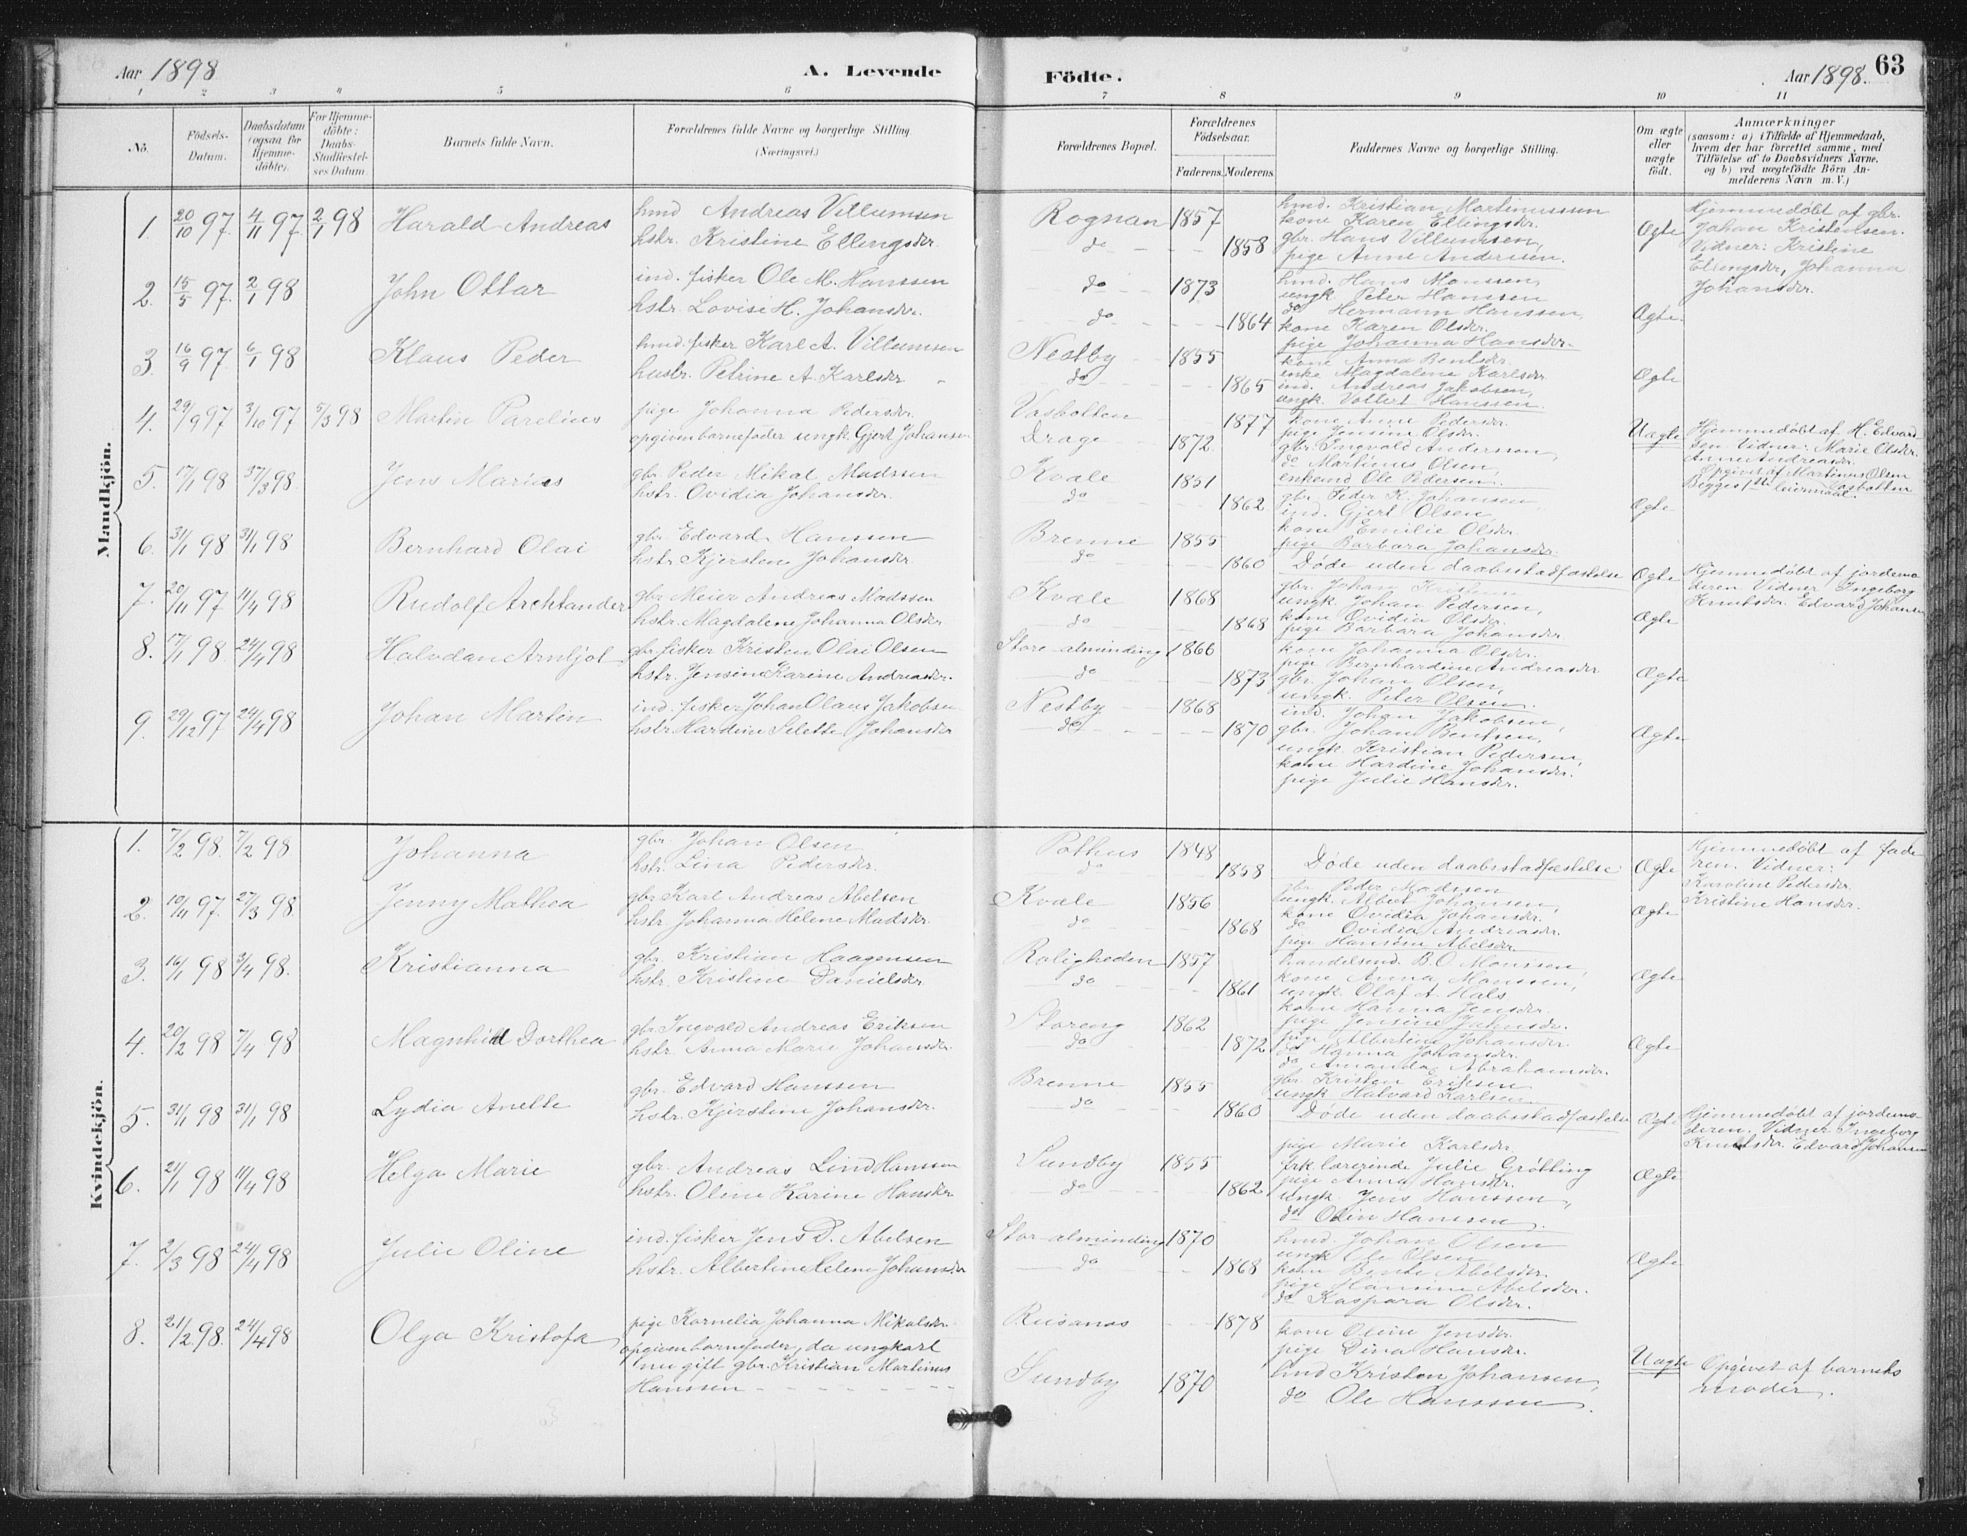 Aar 1898
A. Levende
Födte.
Aar 1898.
63
1 2 3 4 5 6 7 8 9 10 11
No.
Födsels-Datum.
Daabsdatum (ogsaa for Hjemme-döbte).
For Hjemme-döbte: Daabs-Stadfæstel-ses Datum.
Barnets fulde Navn.
Forældrenes fulde Navne og borgerlige Stilling.
(Næringsvei.)
Forældrenes Bopæl.
Forældrenes Födselsaar.
Faderens. Moderens.
Faddernes Navne og borgerlige Stilling.
Om ægte eller uægte födt.
Anmærkninger
(saasom: a) i Tilfælde af Hjemmedaab, hvem der har forrettet samme, med Tilföielse af to Daabsvidners Navne, og b) ved uægtefödte Börn An-melderens Navn m. V.)
Mandkjön.
1. 20/10 97. 4/11 97. 2/1 98 Harald Andreas
hmd Andreas Villumsen
hstr. Kristine Ellingsdr.
Rognan 1857
do 1858
hmd. Kristian Martinussen
kone Karen Ellingsdr.
gbr. Hans Villumsen,
pige Anne Andersen.
Ægte
Hjemmedøbt af gbr.
Johan Kristensen.
Vidner: Kristine
Ellingsdr, Johanna
Johansdr.
2. 15/5 97. 2/1 98 John Ottar
ind. fisker Ole M. Hanssen
hstr. Lovise H. Johansdr.
do 1873
do 1864
hmd. Hans Monssen,
ungk. Peter Hanssen
do Hermann Hanssen,
kone Karen Olsdr.
pige Johanna Hansdr.
Ægte
3. 16/9 97. 6/1 98 Klaus Peder
hmd. fisker Karl A. Villumsen
hustr. Petrine A. Karlsdr
Nestby 1855
do 1865
kone Anna Bentsdr.
enke Magdalene Karlsdr
ind. Andreas Jakobsen,
ungk. Volbert Hanssen.
Ægte
4. 29/9 97 3/10 97 5/3 98 Martin Parelius
pige Johanna Pedersdr.
opgiven barnefader ungk. Gjert Johansen
Vasbotten 1877
Drage 1872
kone Anne Pedersdr.
pige Jensine Olsdr.
gbr. Ingevald Anderssen,
do Martinus Olsen,
enkemd Ole Pedersen.
Uægte
Hjemmedøbt af H. Edvard
sen Vidner: Marie Olsdr.
Anne Andreasdr.
Opgivet af Martinus Olsen
Vasbotten
Begges 1ste leiermaal.
5. 17/1 98 27/3 98. Jens Marius
gbr. Peder Mikal Madssen
hstr. Ovidia Johansdr.
Kvale 1851
do 1862
gbr. Peder K. Johansen
ind. Gjert Olsen,
kone Emilie Olsdr.
pige Barbara Johansdr.
Ægte
6. 31/1 98 31/1 98 Bernhard Olai
gbr. Edvard Hanssen
hstr Kjersten Johansdr.
Brenne 1855
do 1860
Døde uden daabsstadfæstelse
Ægte
Hjemmedøbt af jordemo
deren Vidner Ingeborg
Knutsdr. Edvard Johansen
7. 20/11 97 11/4 98 Rudolf Archtander
gbr Meier Andreas Madssen
hstr. Magdalene Johanna Olsdr.
Kvale 1868
do 1868
gbr. Johan
ungk. Johan Pedersen,
kone Ovidia Olsdr.
pige Barbara Johansdr
Ægte
8. 17/1 98. 24/4 98 Halvdan Arntjot
gbr. fisker Kristen Olai Olsen
hstr. Jensine Karine Andreasdr.
Store-alminding 1866
do 1873
kone Johanna Olsdr.
pige Bernhardine Andreasdr
gbr. Johan Olsen,
ungk. Peter Olsen.
Ægte
9. 29/12 97 24/4 98 Johan Martin
ind. fisker Johan Olaus Jakobsen
hstr Hardine Selette Johansdr
Nestby 1868
do 1870
ind. Johan Jakobsen,
gbr. Johan Bentsen,
ungk. Kristian Pedersen,
kone Hardine Johansdr.
pige Julie Hansdr.
Ægte
Kvindekjön.
1. 7/2 98. 7/2 98 Johanna
gbr. Johan Olsen
hstr. Lina Pedersdr.
Pothus 1848
do 1858
Døde uden daabsstadfæstelse
Ægte
Hjemmedøbt af fade
ren. Vidner:
Karoline Pedersdr.
Kristine Hansdr.
2. 10/11 97. 27/3 98. Jenny Mathea
gbr. Karl Andreas Abelsen
hstr Johanna Helene Madsdr.
Kvale 1856
do 1868
gbr. Peder Madssen
ungk. Albert Johansen,
kone Ovidia Johansdr.
do Ovidia Andreasdr.
pige Hansine Abelsdr.
Ægte
3. 16/1 98 3/4 98. Kristianna
gbr. Kristian Haagensen
hstr. Kristine Danielsdr.
Roligheden 1857
do 1861
handelsmd. B.O. Monssen,
kone Anna Monssen,
ungk. Olaf A. Hals
kone Hanna Jensdr.
pige Jensine Johnsdr.
Ægte
4. 20/2 98 7/4 98 Magnhild Dorthea
gbr. Ingvald Andreas Eriksen
hstr. Anna Marie Johansdr.
Storeng 1862
do 1872
pige Albertine Johansdr.
do Hanna Johansdr.
do Amanda Abrahamsdr.
gbr. Kristen Eriksen
ungk Halvard Karlsen
Ægte
5. 31/1 98 31/1 98 Lydia Anette
gbr. Edvard Hanssen
hstr. Kjerstine Johansdr.
Brenne 1855
do 1860
Døde uden daabsstadfæstelse
Ægte
Hjemmedøbt af jordemo-
deren. Vidner Ingeborg
Knutsdr. Edvard Johansen
6. 21/1 98 11/4 98 Helga Marie
gbr. Andreas Lind Hanssen
hstr. Oline Karine Hansdr
Sundby 1855
do 1862
pige Marie Karlsdr.
frk. lærerinde Julie Grøtting
pige Anna Hansdr.
ungk. Jens Hanssen,
do Olin Hanssen.
Ægte
7. 2/3 98 24/4 98 Julie Oline
ind. fisker Jens D. Abelsen
hstr. Albertine Selene Johansdr
Stor-alminding 1870
do 1868
hmd. Johan Olsen
ungk Ole Olsen
kone Bente Abelsdr.
pige Hansine Abelsdr.
do Kaspara Olsdr.
Ægte
8. 21/2 98. 24/4 98 Olga Kristofa
pige Kornelia Johanna Mikalsdr.
opgiven barnefader, da ungkarl
nu gift gbr. Kristian Martinus
Hanssen
Rusanas 1878
Sundby 1870
kone Oline Jensdr.
pige Dina Hansdr.
hmd Kristen Johansen,
do Ole Hanssen.
Uægte
Opgivet af barnets
moder.